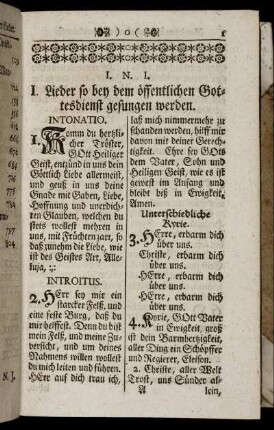 ) o (
1
I. N. I.
I. Lieder so bey dem öffentlichen Got-
tesdienst gesungen werden.
INTONATIO.
1. Komm du hertzli-
cher Tröster,
GOtt Heiliger
Geist, entzünd in uns dein
Göttlich Liebe allermeist,
und geuß in uns deine
Gnade mit Gaben, Liebe,
Hoffnung und unerdich-
ten Glauben, welchen du
stets wollest mehren in
uns, mit Früchten zart, so
daß zunehm die Liebe, wie
ist des Geistes Art, Alle-
luja,
INTROITUS.
2. HErr sey mir ein
starcker Felß, und
eine feste Burg, daß du
mir helffest. Denn du bist
mein Felß, und meine Zu-
versicht, und um deines
Nahmens willen wollest
du mich leiten und führen.
HErr auf dich trau ich,
laß mich nimmermehr zu
schanden werden, hilff mir
davon mit deiner Gerech-
tigkeit. Ehre sey GOtt
dem Vater, Sohn und
Heiligen Geist, wie es ist
gewest im Anfang und
bleibt biß in Ewigkeit,
Amen.
Unterschiedliche
Kyrie.
3. HErre, erbarm dich
über uns.
Christe, erbarm dich
über uns.
HErre, erbarm dich
über uns.
HErre, erbarm dich
über uns.
4. Kyrie, GOtt Vater
in Ewigkeit, groß
ist dein Barmhertzigkeit,
aller Ding ein Schöpffer
und Regierer, Eleison.
2. Christe, aller Welt
Trost, uns Sünder al-
A lein,
N. J.